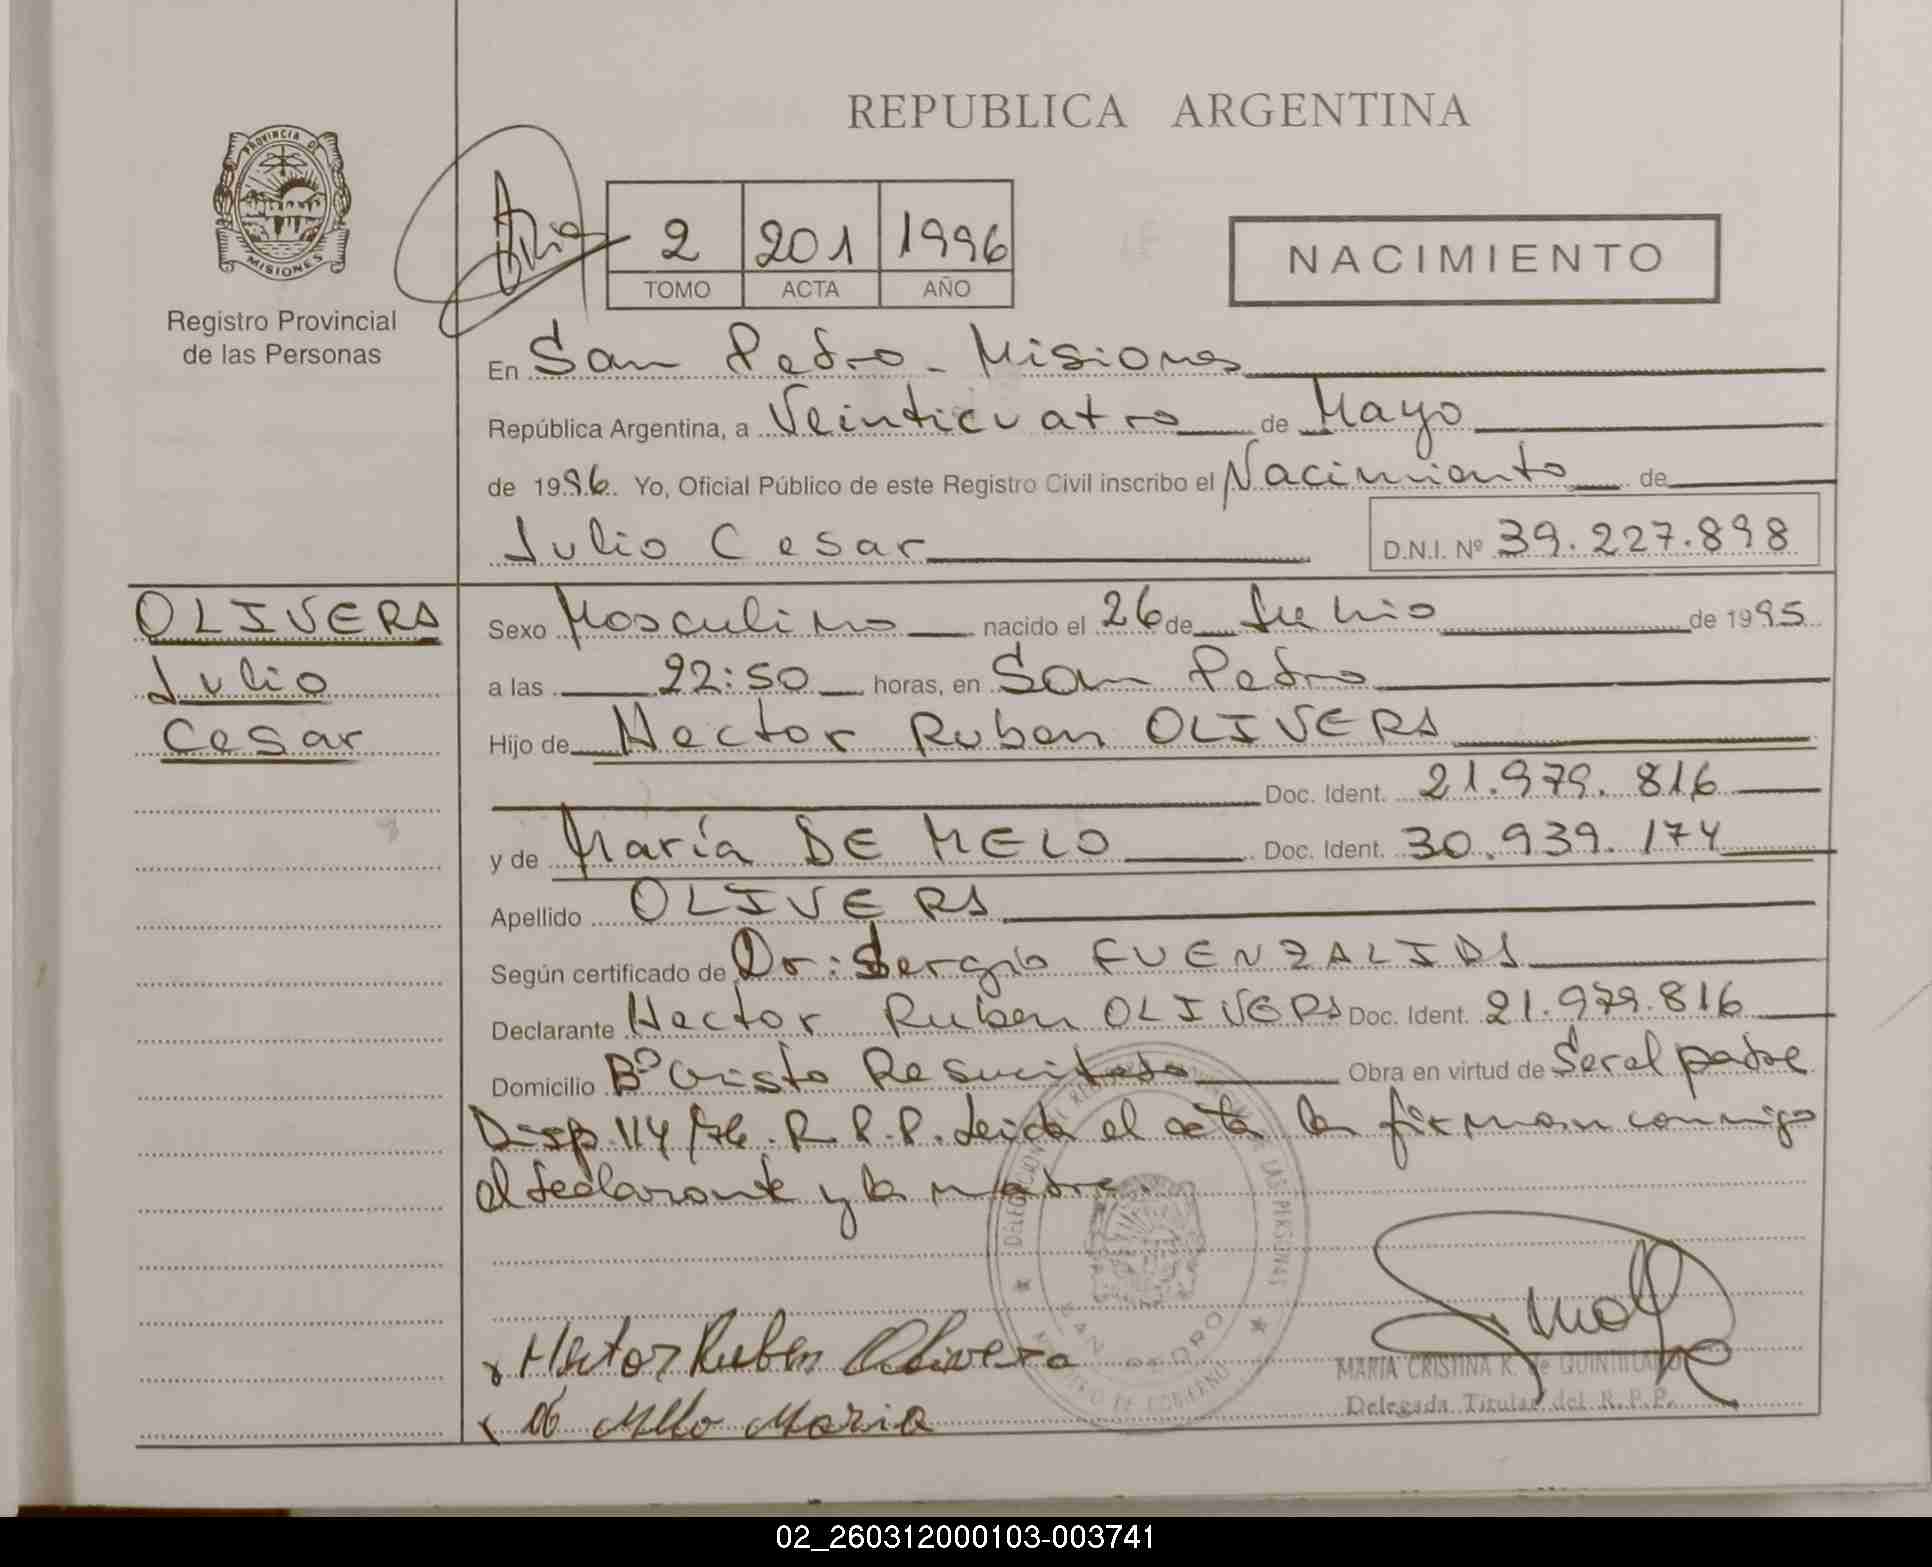 REPUBLICA ARGENTINA
PROVINCIA DE
MISIONES
Registro Provincial
de las Personas
2 201 1996
TOMO ACTA AÑO
NACIMIENTO
En San Pedro - Misiones
República Argentina, a Veinticuatro de Mayo
de 1996. Yo, Oficial Público de este Registro Civil inscribo el Nacimiento de
Julio Cesar D.N.I. Nº 39.227.898
OLIVERA
Julio
Cesar
Sexo Masculino nacido el 26 de Junio de 1995
a las 22:50 horas, en San Pedro
Hijo de Hector Ruben OLIVERA
Doc. Ident. 21.979.816
y de María DE MELO Doc. Ident. 30.939.174
Apellido OLIVERA
Según certificado de Dr: Sergio FUENZALIDA
Declarante Hector Ruben OLIVERA Doc. Ident. 21.979.816
Domicilio Bº Cristo Resucitado Obra en virtud de Ser el padre
Disp. 114/96. R.P.P. Leida el acta la firman conmigo
el declarante y la madre.
DE LAS PERSONAS
SAN PEDRO
x Hector Ruben Olivera
x de Mello Maria
MARIA CRISTINA K. de QUINTILIANO
Delegada Titular del R.P.P.
02_260312000103-003741